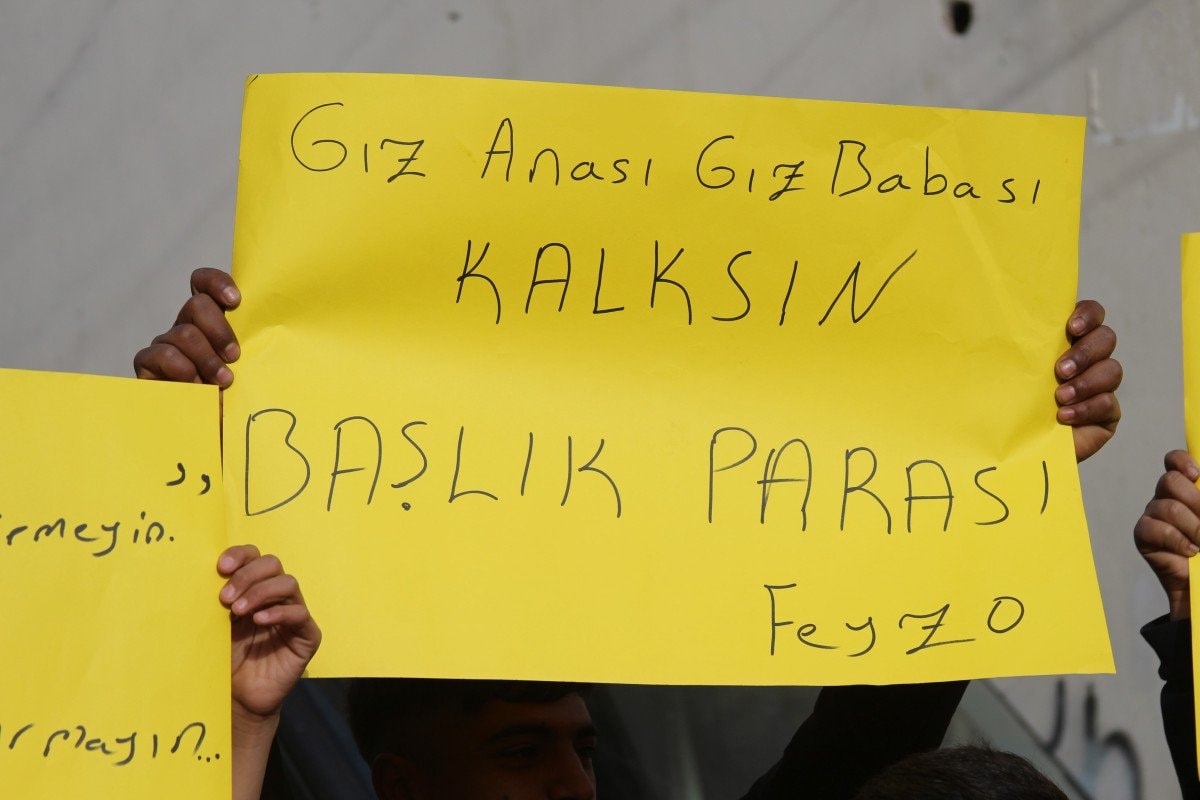 Gız Anası Gız Babası
KALKSIN
BAŞLIK PARASI
Feyzo
,,
rmeyin.
rmayın...